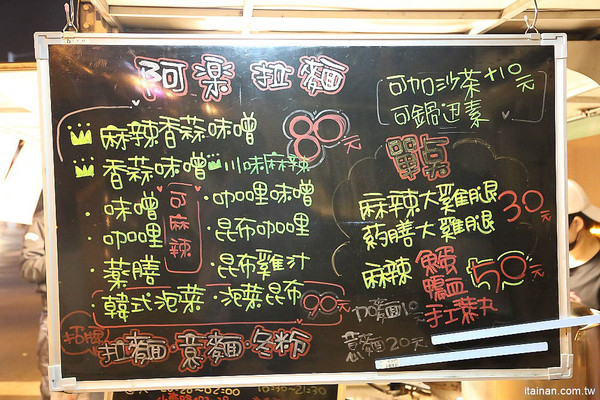 阿楽拉麵
麻辣香蒜味噌
香蒜味噌 川味麻辣
80元
味噌
咖哩
藥膳
可麻辣
咖哩味噌
昆布咖哩
昆布雞汁
韓式泡菜・泡菜昆布 90元
招牌
拉麵・意麵・冬粉
可加沙茶+10元
可鍋边素
單點
麻辣大雞腿
藥膳大雞腿
30元
麻辣
鴨血
手工菜丸
50元
加麵10元
意麵20元
itainan.com.tw